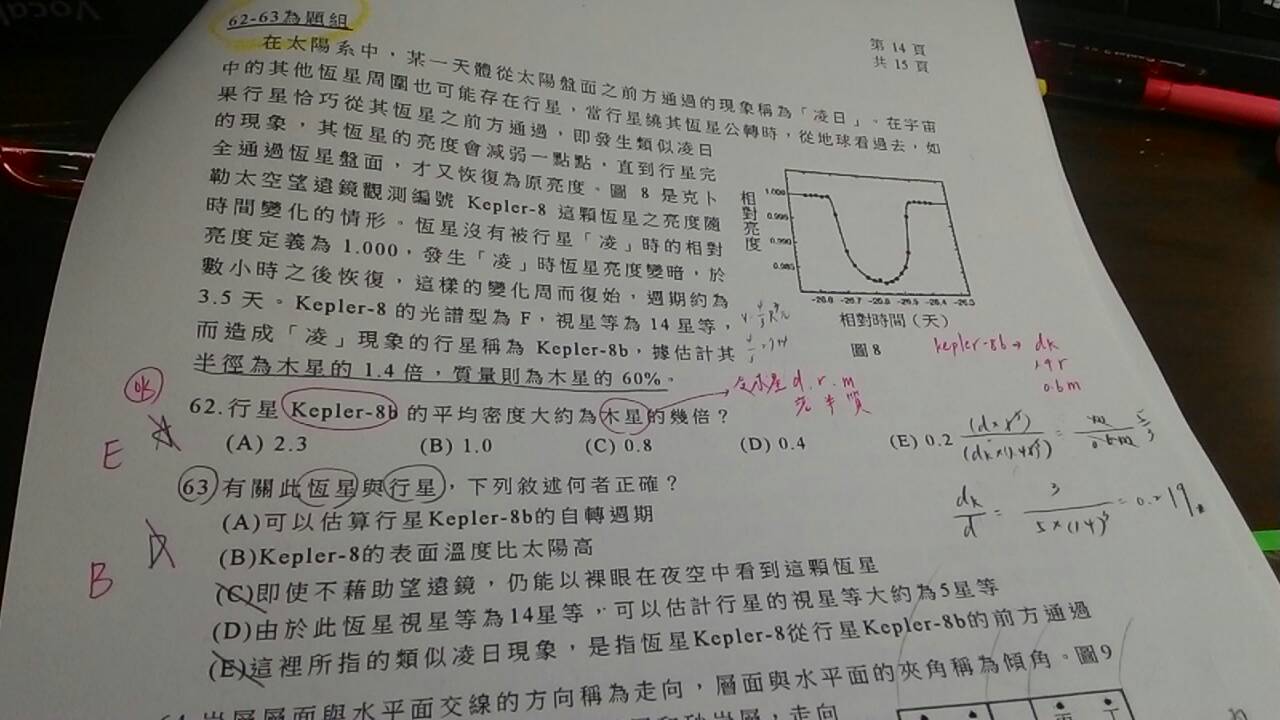 62-63為題組
第 14 頁
共 15 頁
在太陽系中，某一天體從太陽盤面之前方通過的現象稱為「凌日」。在宇宙
中的其他恆星周圍也可能存在行星，當行星繞其恆星公轉時，從地球看過去，如
果行星恰巧從其恆星之前方通過，即發生類似凌日
的現象，其恆星的亮度會減弱一點點，直到行星完
全通過恆星盤面，才又恢復為原亮度。圖 8 是克卜
勒太空望遠鏡觀測編號 Kepler-8 這顆恆星之亮度隨
時間變化的情形。恆星沒有被行星「凌」時的相對
亮度定義為 1.000，發生「凌」時恆星亮度變暗，於
數小時之後恢復，這樣的變化周而復始，週期約為
3.5 天。Kepler-8 的光譜型為 F，視星等為 14 星等，
而造成「凌」現象的行星稱為 Kepler-8b，據估計其
半徑為木星的 1.4 倍，質量則為木星的 60%。
相對亮度
1.000
0.995
0.990
0.985
-26.8 -26.7 -26.6 -26.5 -26.4 -26.3
相對時間（天）
圖 8
kepler-8b → dk
1.4 r
0.6 m
d . r . m
62.行星 Kepler-8b 的平均密度大約為木星的幾倍？
(A) 2.3 (B) 1.0 (C) 0.8 (D) 0.4 (E) 0.2
E
63 有關此恆星與行星，下列敘述何者正確？
(A)可以估算行星Kepler-8b的自轉週期
(B)Kepler-8的表面溫度比太陽高
(C)即使不藉助望遠鏡，仍能以裸眼在夜空中看到這顆恆星
(D)由於此恆星視星等為14星等，可以估計行星的視星等大約為5星等
(E)這裡所指的類似凌日現象，是指恆星Kepler-8從行星Kepler-8b的前方通過
B
dk/d = 3/5×(1.4)³ = 0.219
層面與水平面交線的方向稱為走向，層面與水平面的夾角稱為傾角。圖9